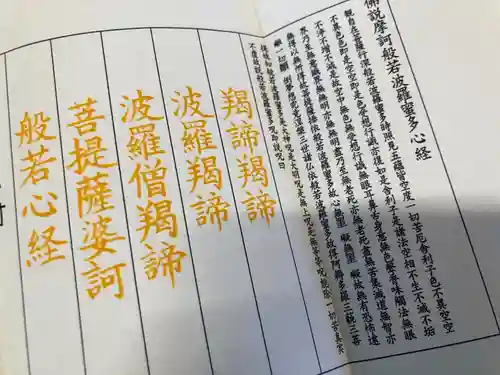 佛説摩訶般若波羅蜜多心経
観自在菩薩行深般若波羅蜜多時照見五蘊皆空度一切苦厄舎利子色不異空空
不異色色即是空空即是色受想行識亦復如是舎利子是諸法空相不生不滅不垢
不浄不増不減是故空中無色無受想行識無眼耳鼻舌身意無色聲香味觸法無眼
界乃至無意識界無無明亦無無明盡乃至無老死亦無老死盡無苦集滅道無智亦
無得以無所得故菩提薩埵依般若波羅蜜多故心無罣礙無罣礙故無有恐怖遠
離一切顛倒夢想究竟涅槃三世諸佛依般若波羅蜜多故得阿耨多羅三藐三菩
提故知般若波羅蜜多是大神呪是大明呪是無上呪是無等等呪能除一切苦真実
不虚故説般若波羅蜜多呪即説呪曰
羯諦羯諦
波羅羯諦
波羅僧羯諦
菩提薩婆訶
般若心経